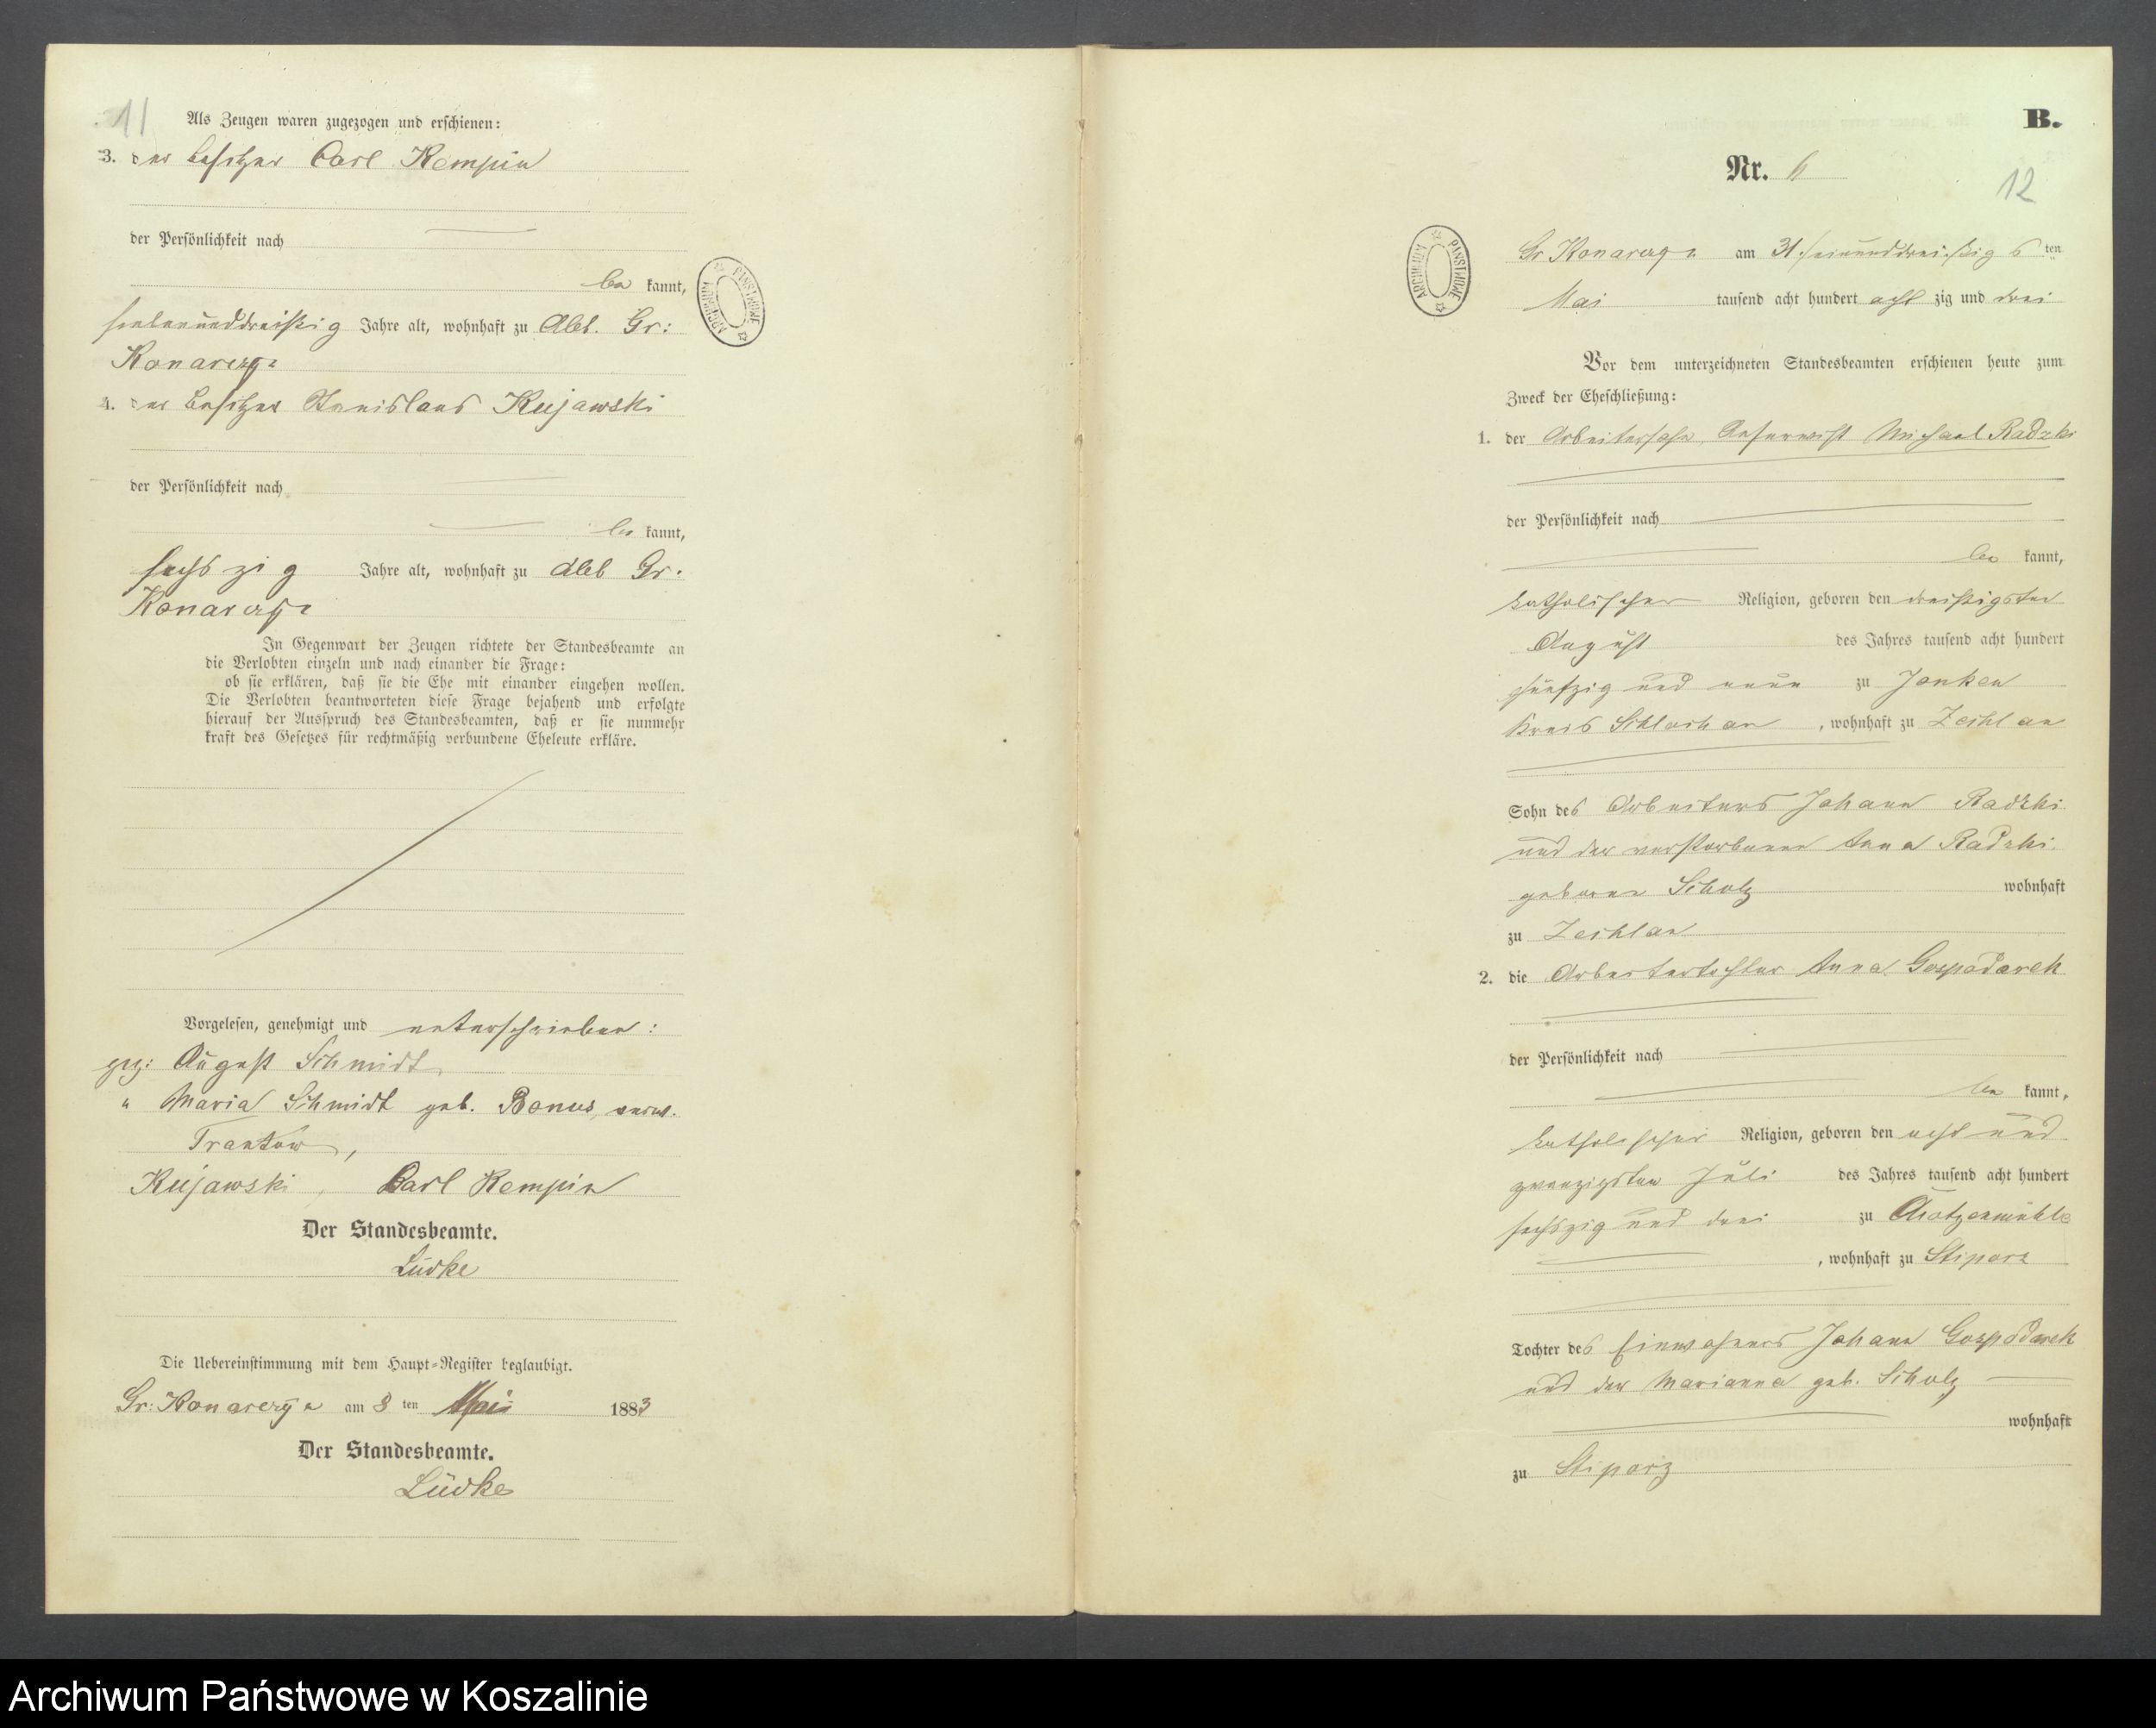 11
Als Zeugen waren zugezogen und erschienen:
3. der Besitzer Carl Kempin
der Persönlichkeit nach
be kannt,
siebenunddreißig Jahre alt, wohnhaft zu Abb. Gr:
Konarczyn
4. der Besitzer Stanislaus Kujawski
der Persönlichkeit nach
be kannt,
sechszig Jahre alt, wohnhaft zu Abb Gr.
Konarczyn
In Gegenwart der Zeugen richtete der Standesbeamte an
die Verlobten einzeln und nach einander die Frage:
ob sie erklären, daß sie die Ehe mit einander eingehen wollen.
Die Verlobten beantworteten diese Frage bejahend und erfolgte
hierauf der Ausspruch des Standesbeamten, daß er sie nunmehr
kraft des Gesetzes für rechtmäßig verbundene Eheleute erkläre.
Vorgelesen, genehmigt und unterschrieben:
gez: August Schmidt,
" Maria Schmidt geb. Bonus, verw.
Trantow,
Kujawski, Carl Kempin
Der Standesbeamte.
Lüdke
Die Uebereinstimmung mit dem Haupt-Register beglaubigt.
Gr: Konarczyn am 8 ten Mai 1883
Der Standesbeamte.
Lüdke
ARCHIWUM PAŃSTWOWE
B.
Nr. 6
12
ARCHIWUM PAŃSTWOWE
Gr Konarczyn am 31 einunddreißigs ten
Mai tausend acht hundert acht zig und drei
Vor dem unterzeichneten Standesbeamten erschienen heute zum
Zweck der Eheschließung:
1. der Arbeitersohn, Michael Radzki
der Persönlichkeit nach
be kannt,
katholischer Religion, geboren den dreißigsten
August des Jahres tausend acht hundert
fünfzig und neun zu Janken
Kreis Schlochau, wohnhaft zu Zechlau
Sohn des Arbeiters Johann Radzki
und der verstorbenen Anna Radzki
geborne Scholz wohnhaft
zu Zechlau
2. die Arbeitertochter Anna Gospodarek
der Persönlichkeit nach
be kannt,
katholischer Religion, geboren den acht und
zwanzigsten Juli des Jahres tausend acht hundert
sechszig und drei zu
, wohnhaft zu
Tochter des Einwohners Johann Gospodarek
und der Marianna geb. Scholz
wohnhaft
zu
Archiwum Państwowe w Koszalinie